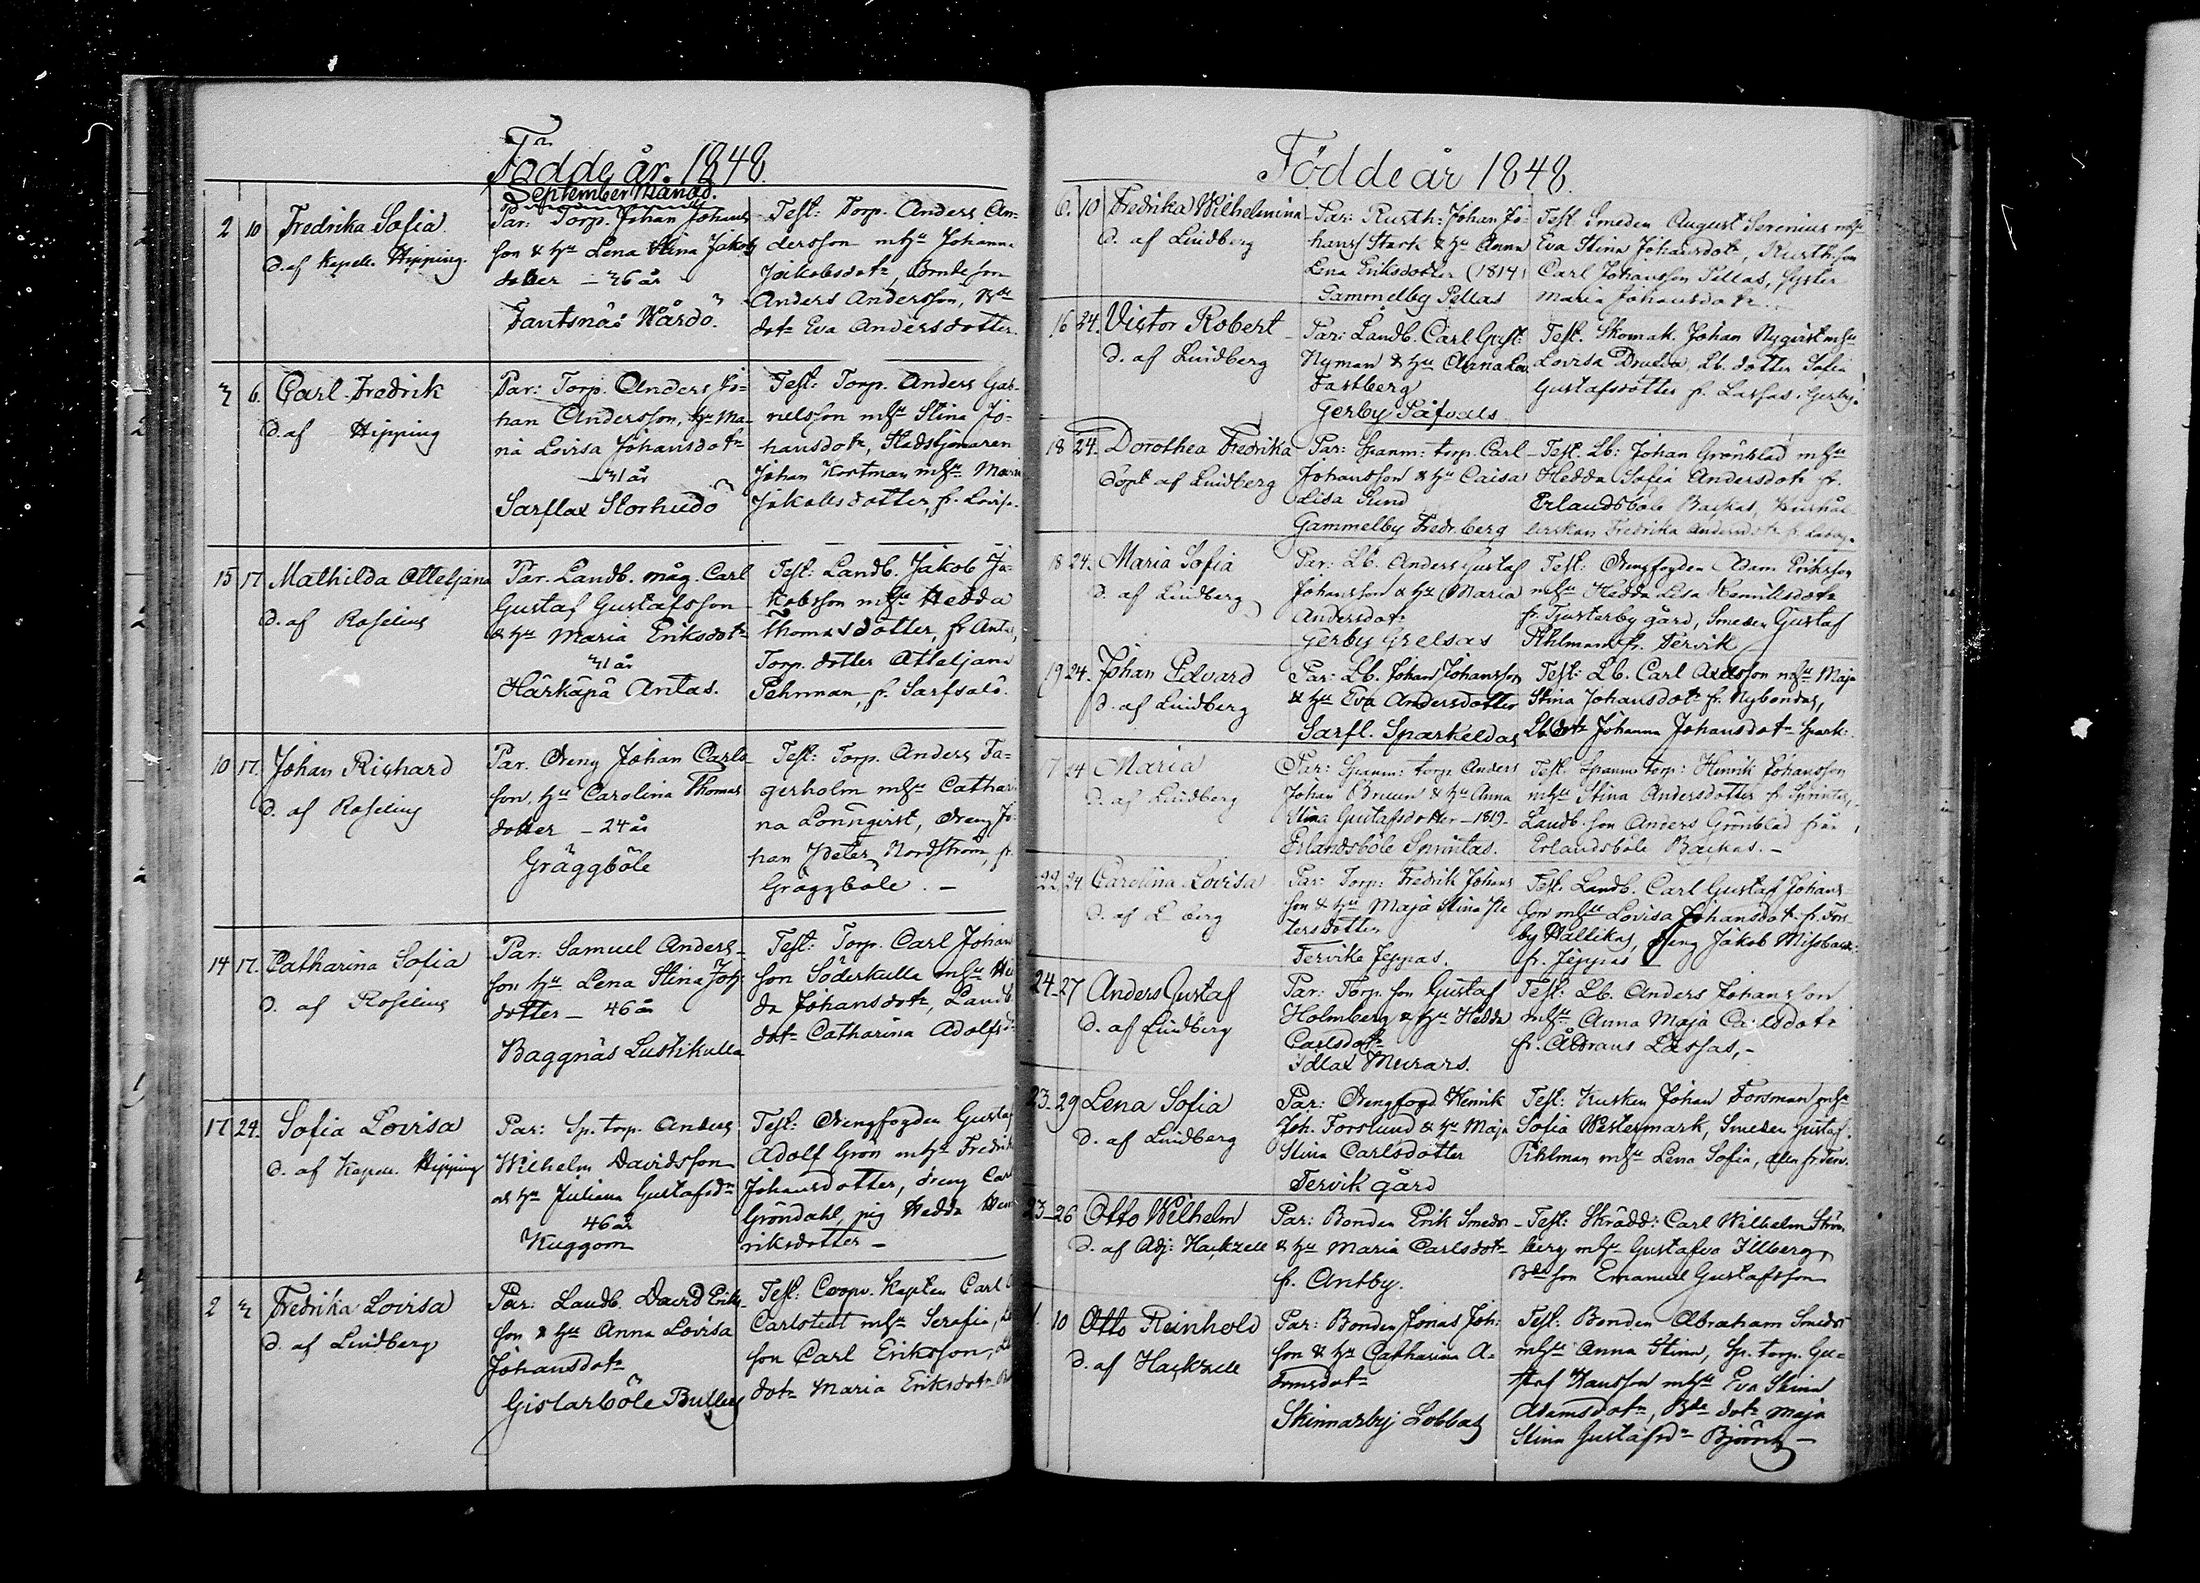 Födde år 1848.
September Månad.
2 10 Fredrika Sofia
d. af Kapell. Hipping.
Par: Torp. Johan Johans
son & hu Lena Stina Jakobs
dotter – 36 år
Fantsnäs Wårdö.
Test: Torp. Anders An-
dersson mhu Johanna
Jakobsdotr, Bondeson
Anders Andersson, Bde
dotr Eva Andersdotter.
3 6. Carl Fredrik
d. af Hipping
Par: Torp. Anders Jo-
han Andersson, hu Ma-
ria Lovisa Johansdotr
31 år
Sarflax Storhudö
Test: Torp. Anders Gab-
rielsson mhu Stina Jo-
hansdotr, Stadstjenaren
Johan Kortman mhu Maria
Jakobsdotter, fr. Lovisa.
15 17. Mathilda Atteljana
d. af Roselius
Par. Landb. måg. Carl
Gustaf Gustafsson
& hu Maria Eriksdotr
31 år
Härkäpä Antas.
Test: Landb. Jakob Ja-
kobsson mhu Hedda
Thomasdotter, fr Antas,
Torp. dotter Atteljana
Pehrman, fr. Sarfsalö.
10 17. Johan Richard
d. af Roselius
Par. Dreng Johan Carls-
son, hu Carolina Thomas
dotter – 24 år
Gräggböle
Test: Torp. Anders Fa-
gerholm mhu Catha-
rina Lönnqvist, dreng Jo-
han Peter Nordström, fr.
Gräggböle. –
14 17. Catharina Sofia
d. af Roselius
Par: Samuel Anders-
son hu Lena Stina Joh:
dotter – 46 år
Baggnäs Lustikulla
Test: Torp. Carl Johans
son Söderkulla mhu Hed
da Johansdotr, Landb.
dotr Catharina Adolfsdr
17 24. Sofia Lovisa
d. af Kapell. Hipping
Par: Sp. torp. Anders
Wilhelm Davidsson
& hu Juliana Gustafsdr
46 år
Kuggom
Test: Drengfogden Gustaf
Adolf Grön mhu Fredrika
Johansdotter, dreng Carl
Gröndahl, pig Hedda Hen
riksdotter –
2 3 Fredrika Lovisa
d. af Lindberg
Par: Landb. David Eriks-
son & hu Anna Lovisa
Johansdotr
Gislarböle Bullers
Test: Coopv. Kapten Carl
Carlstedt mhu Serafia,
son Carl Eriksson,
dotr Maria Eriksdotr
Födde år 1848.
6. 10 Fredrika Wilhelmina
d. af Lindberg
Par: Rusth: Johan Jo-
hanss Stark & hu Anna
Lena Eriksdotter (1814)
Gammelby Pellas
Test. Smeden August Serenius mhu
Eva Stina Johansdotr, Rusth. son
Carl Johansson Pellas, syster
Maria Johansdotr
16 24. Victor Robert
d. af Lindberg
Par: Landb. Carl Gust.
Nyman & hu Anna Lov.
Fastberg
Gerby Påfvals
Test. Skomak. Johan Nyqvist mhu
Lovisa Druda, Lb. dotter Sofia
Gustafsdotter fr. Lassas i Gerby.
18 24. Dorothea Fredrika
Döpt af Lindberg
Par: Spanm: torp. Carl
Johansson & hu Caisa
Lisa Sund
Gammelby Fredr. berg
Test. Lb: Johan Grönblad mhu
Hedda Sofia Andersdotr fr.
Erlandsböle Backas, Hushål
lerskan Fredrika Andersdotr fr. Labby.
18 24. Maria Sofia
d. af Lindberg
Par: Lb. Anders Gustaf
Johansson & hu Maria
Andersdotr
Gerby Grelsas
Test: Drengfogden Adam Eriksson
mhu Hedda Lisa Henriksdotr
fr. Tjusterby gård, Smeden Gustaf
Pihlman fr. Tervik
19 24. Johan Edvard
d. af Lindberg
Par: Lb. Johan Johansson
& hu Eva Andersdotter
Sarfl. Sparkeldas
Test: Lb. Carl Axelsson mhu Maja
Stina Johansdotr fr. Nybondas,
Lb. dotr Johanna Johansdotr Spark:
7 24 Maria
d. af Lindberg
Par: Spanm: torp. Anders
Johan Bruun & hu Anna
Stina Gustafsdotter – 1819.
Erlandsböle Sprintas.
Test: Spanm: torp: Henrik Johansson
mhu Stina Andersdotter fr Sprintas,
Landb. son Anders Grönblad från
Erlandsböle Backas. –
22 24 Carolina Lovisa
d. af L berg
Par: Torp: Fredrik Johans
son & hu Maja Stina Pe
tersdotter
Tervike Jeppas.
Test. Landb. Carl Gustaf Johans-
son mhu Lovisa Johansdotr fr. Fors
by Hallikas, dreng Jakob Missback:
fr. Jeppas –
24 27 Anders Gustaf
d. af Lindberg
Par: Torp. son Gustaf
Holmberg & hu Hedda
Carlsdotr
Idlax Murars.
Test: Lb. Anders Johansson
mhu Anna Maja Carlsdotr
fr. Lassas. –
23 29 Lena Sofia
d. af Lindberg
Par: Drengfogd. Henrik
Joh. Forslund & hu Maja
Stina Carlsdotter
Tervik gård
Test: Kusken Johan Forsman mhu
Sofia Westermark, Smeden Gustaf
Pihlman mhu Lena Sofia, alla fr. Terv.
23 26 Otto Wilhelm
d. af Adj: Hackzell
Par: Bonden Erik Smeds
& hu Maria Carlsdotr
fr. Antby.
Test: Skrädd: Carl Wilhelm Ström
berg mhu Gustafva Illberg,
Bde son Emanuel Gustafsson
1. 10 Otto Reinhold
d. af Hackzell
Par: Bonden Jonas Joh:
son & hu Catharina A-
damsdotr
Skinnarby Lobbas
Test. Bonden Abraham Smeds
mhu Anna Stina, Sp. torp. Gu-
staf Hansson mhu Eva Stina
Adamsdotr, Bde dotr Maja
Stina Gustafsdr Björns –